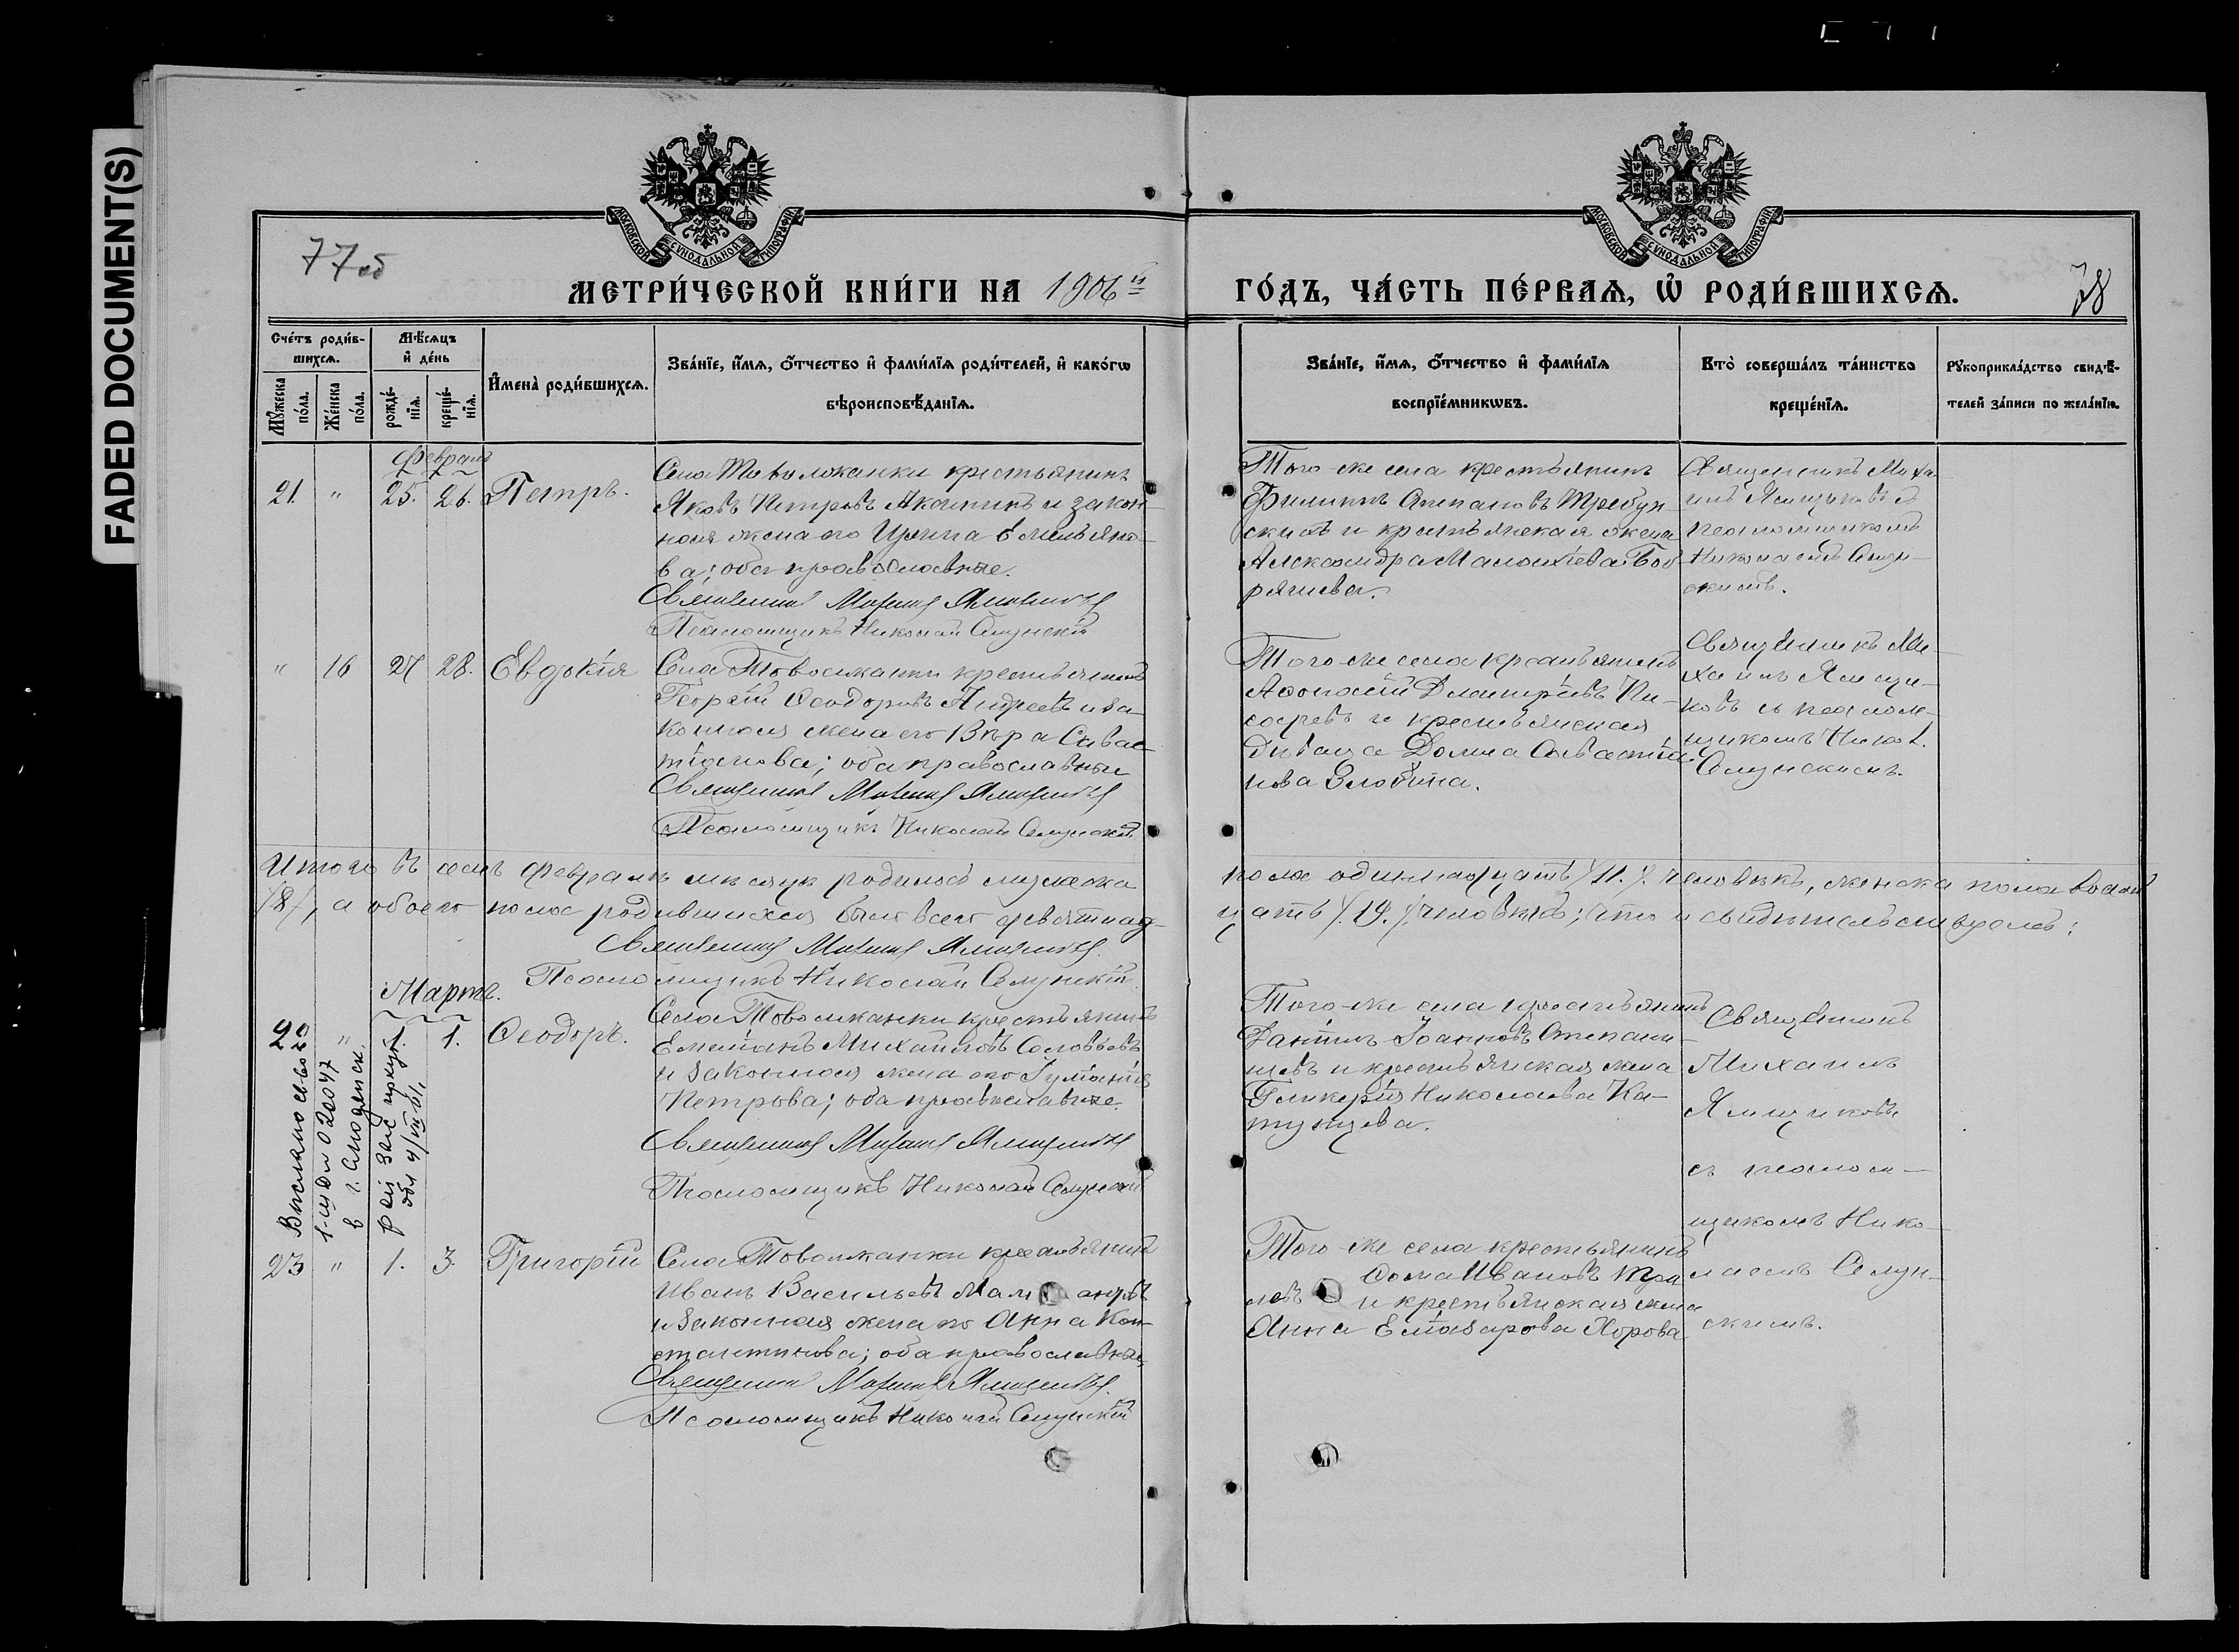 FADED DOCUMENT(S)
МОСКОВСКОЙ СѴНОДАЛЬНОЙ ТИПОГРАФІИ
МОСКОВСКОЙ СѴНОДАЛЬНОЙ ТИПОГРАФІИ
77об
МЕТРИ́ЧЕСКОЙ КНИ́ГИ НА 1906й
ГО́ДЪ, ЧА́СТЬ ПЕ́РВАЯ, Ѽ РОДИ́ВШИХСЯ.
78
Сче́тъ роди́в-
шихся.
Мꙋ́жеска по́ла.
Же́нска по́ла.
Мѣ́сяцъ и҆ де́нь
рожде́-нїя.
креще́-нїя.
И҆мена̀ роди́вшихся.
Зва́нїе, и҆́мя, ѻ҆́тчество и҆ фами́лїя роди́телей, и҆ како́гѡ
вѣроисповѣ́данїя.
Зва́нїе, и҆́мя, ѻ҆́тчество и҆ фами́лїя
воспрїе́мникѡвъ.
Кто̀ соверша́лъ та́инство
креще́нїя.
Рꙋкоприкла́дство свидѣ́-
телей за́писи по жела́нїю.
Февраль
21. " 25. 26. Петръ.
Села Товолжанки крестьянинъ
Яковъ Петровъ Акатинъ и закон-
ная жена его Ирина Емельяно-
ва; оба православные.
Священникъ Михаилъ Ямщиковъ
Псаломщикъ Николай Селунскій
Того-же села крестьянинъ
Филиппъ Степановъ Требун-
скихъ и крестьянская жена
Александра Бод-
Священникъ Миха-
илъ Ямщиковъ съ
псаломщикомъ
Николаемъ Селун-
скимъ.
" 16 27 28. Евдокія
Села Товолжанки крестьянинъ
Георгій Ѳеодоровъ Андреевъ и за-
конная жена его Вѣра Савас-
тіанова; оба православные
Священникъ Михаилъ Ямщиковъ
Псаломщикъ Николай Селунскій
Того-же села крестьянинъ
Аѳонасій Димитріевъ
и крестьянская
дѣвица Домна Савастіа-
нова Злобина.
Священникъ Ми-
хаилъ Ямщи-
ковъ съ псалом-
щикомъ Никол.
Селунскимъ.
Итого въ семъ Февралѣ мѣсяцѣ родилось мужеска
пола одиннадцать /11./ человѣкъ, женска пола восемь
/8/, а обоего пола родившихся было всего девятнад-
цать /.19./ человѣкъ; что и свидѣтельствуемъ:
Священникъ Михаилъ Ямщиковъ.
Псаломщикъ Николай Селунскій.
Мартъ.
22 " 1. 1. Ѳеодоръ.
Выслано св-во
в г.
Села Товолжанки крестьянинъ
Емеліанъ Михаиловъ Соловьевъ
и законная жена его Іуліанія
Петрова; оба православные.
Священникъ Михаилъ Ямщиковъ
Псаломщикъ Николай Селунскій
Того-же села крестьянинъ
Іоанновъ
и крестьянская жена
Гликерія Николаева Ка-
тунцева.
Священникъ
Михаилъ
Ямщиковъ
съ псалом-
щикомъ Нико-
лаемъ Селун-
скимъ.
23 " 1. 3. Григорій
Села Товолжанки крестьянинъ
Иванъ Васильевъ
и законная жена его Анна Кон-
стантинова; оба православные,
Священникъ Михаилъ Ямщиковъ.
Псаломщикъ Николай Селунскій
Того-же села крестьянинъ
Ѳома Ивановъ
и крестьянская жена
Анна Еліазарова Хорова